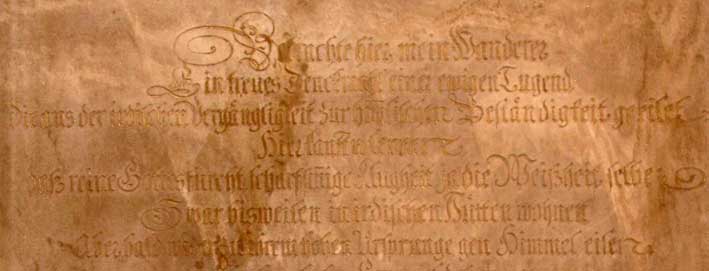 Betrachte hier mein Wanderer
Ein treues Denckmahl einer ewigen Tugend
Die aus der irdischen Vergängligkeit zur himlischen Beständigkeit geeilet
Hier
daß reine Gottesfurcht scharfsinige Klugheit ja die Weißheit selbe
Zwar bisweilen in irdischen Hütten wohnen
Aber bald zu ihrem hohen Ursprunge gen Himmel eilen